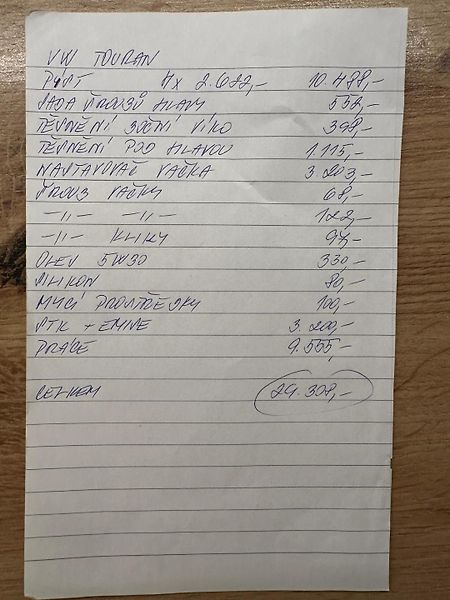 VW TOURAN
PÍST 4x 2.622,- 10.488,-
SADA ŠROUBŮ HLAVY 552,-
TĚSNĚNÍ BOČNÍ VÍKO 398,-
TĚSNĚNÍ POD HLAVOU 1.115,-
NASTAVOVAČ VAČKA 3.203,-
ŠROUB VAČKY 68,-
-11- -11- 122,-
-11- KLIKY 97,-
OLEJ 5W30 330,-
SILIKON 80,-
MYCÍ PROSTŘEDKY 100,-
STK + EMISE 3.200,-
PRÁCE 9.555,-
CELKEM 29.308,-